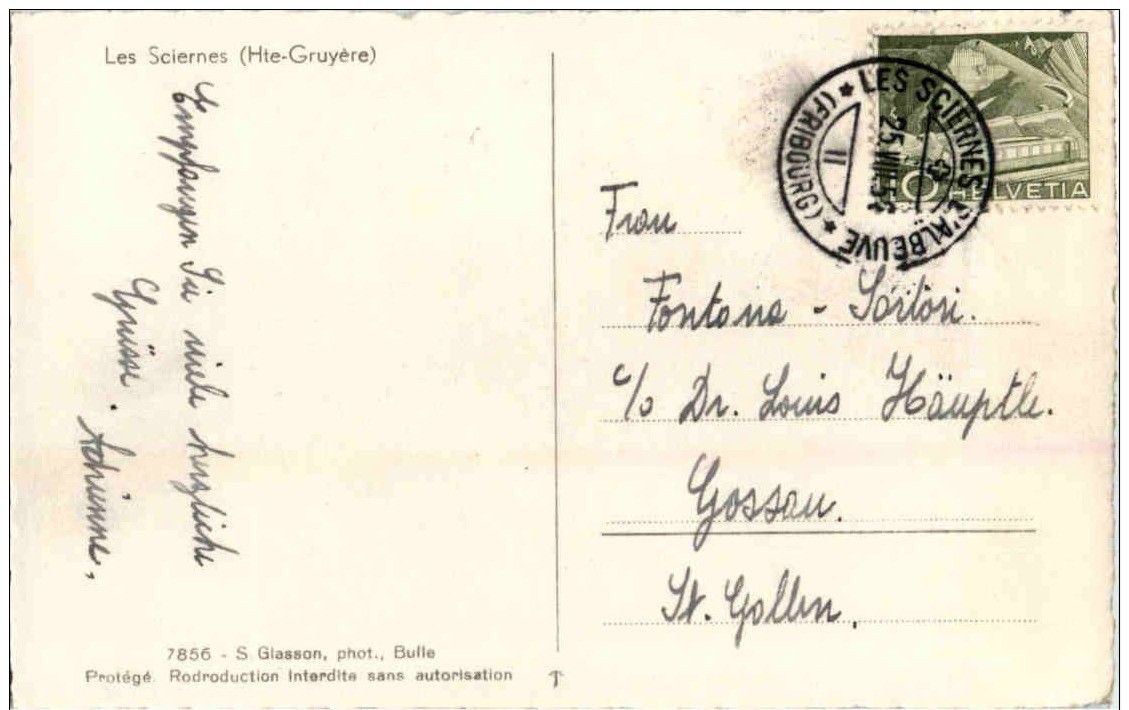 Les Sciernes (Hte-Gruyère)
Empfangen Sie viele herzliche
Grüsse.
7856 - S Glasson, phot., Bulle
Protégé. Rodroduction Interdite sans autorisation
LES SCIERNES D'ALBEUVE
(FRIBOURG)
25.VIII.52
II
HELVETIA
Frau
Fontana - Sartori.
c/o Dr. Louis Häuptle.
Gossau.
St. Gallen,